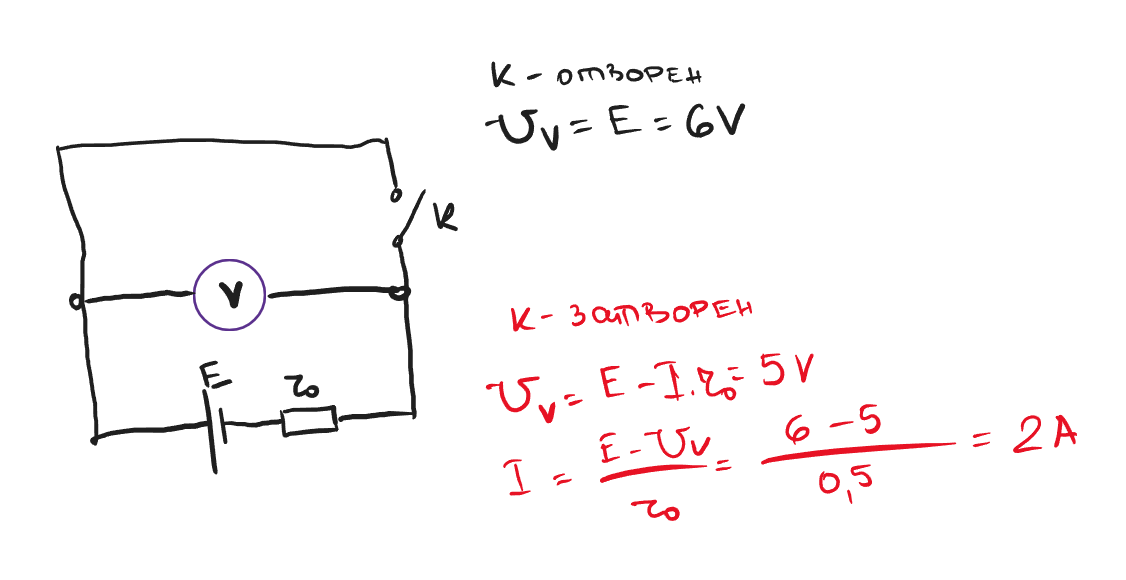 K - отворен
U_V = E = 6V
K
V
E
r₀
K - затворен
U_V = E - I.r₀ = 5V
I = (E - U_V) / r₀ = (6 - 5) / 0,5 = 2A